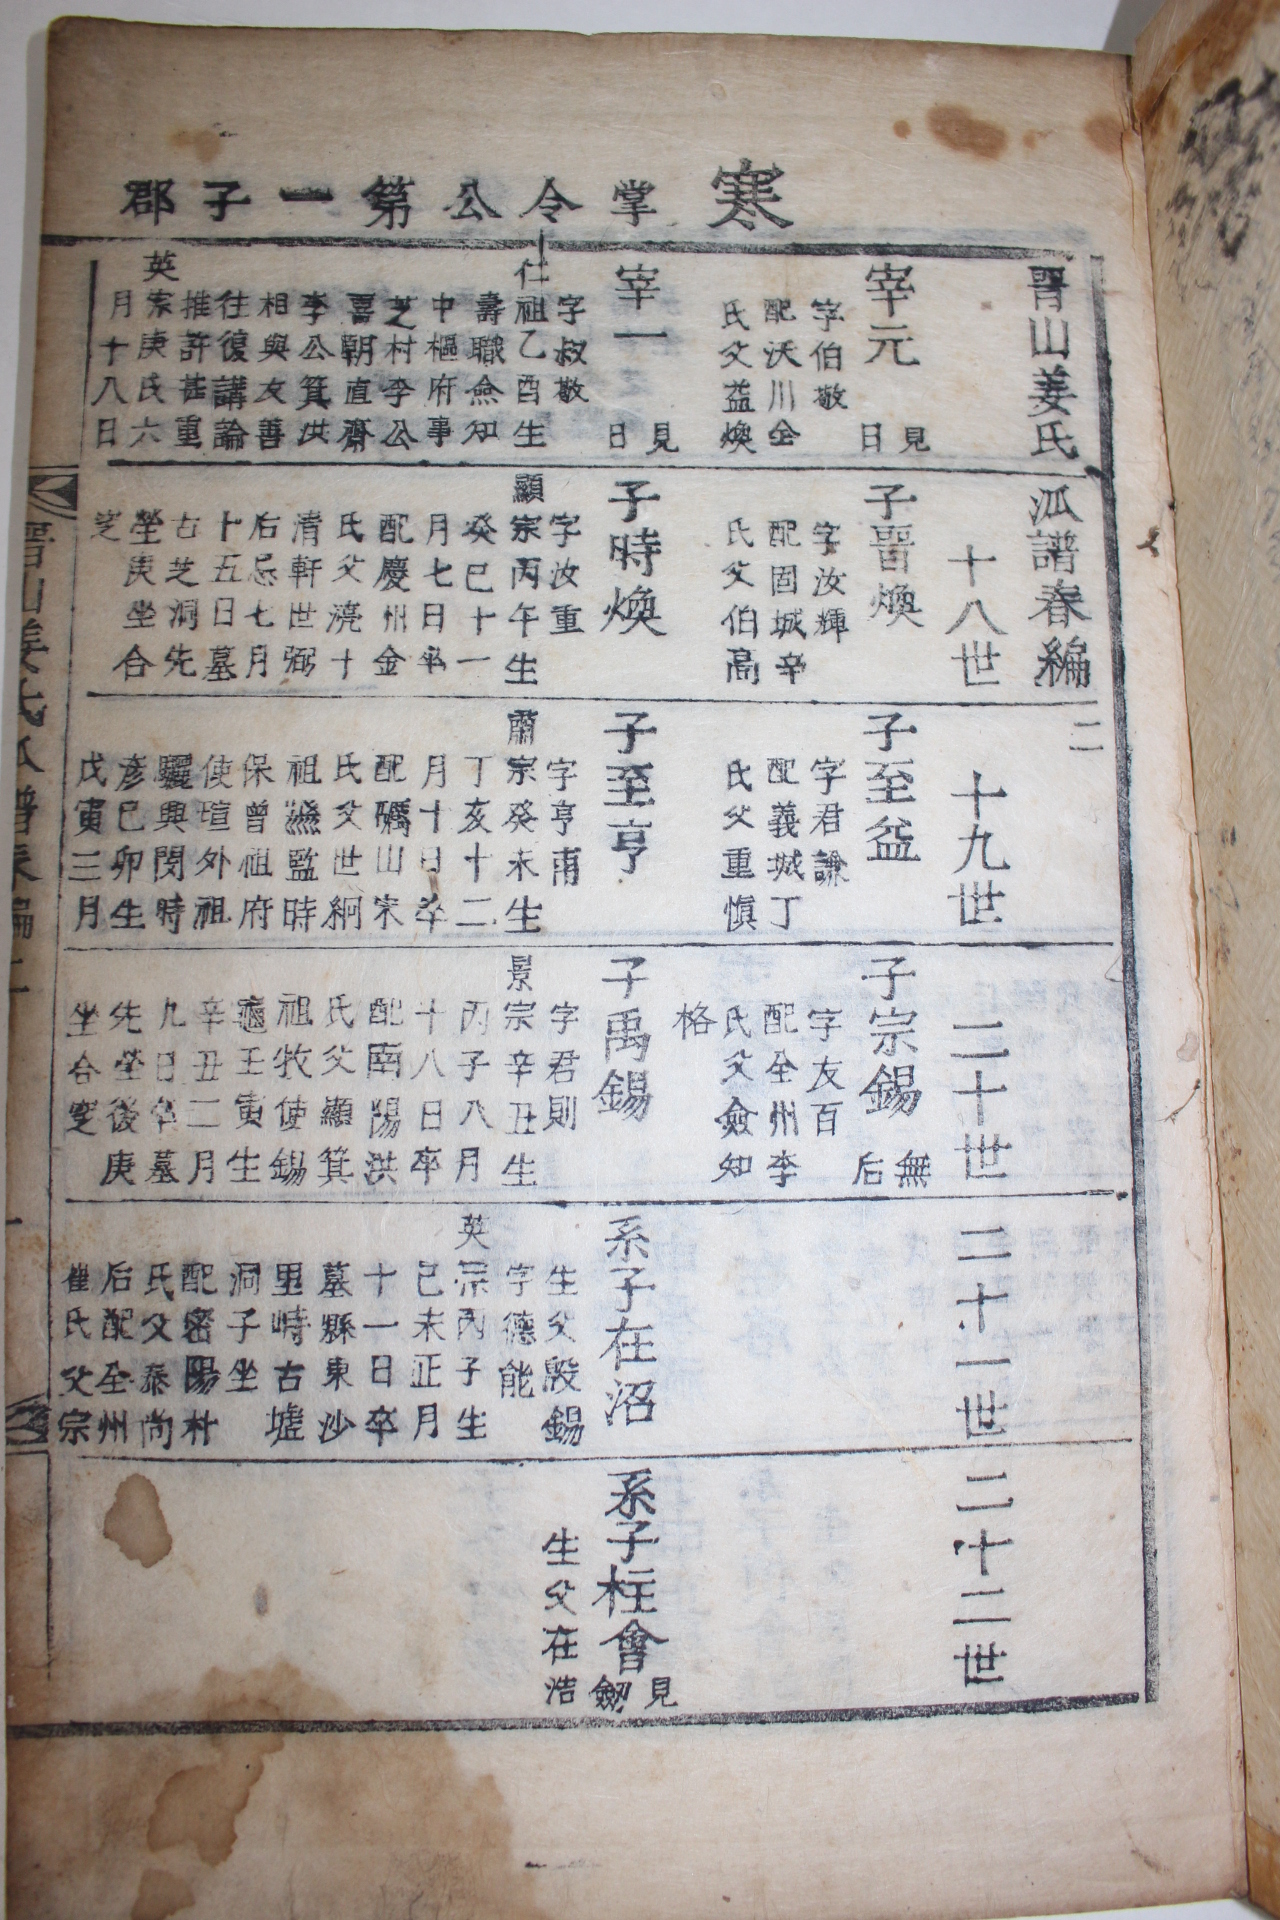 寒
掌令公第一子郡
晋山姜氏
派譜春編
二
十八世
十九世
二十世
二十一世
二十二世
宰元
見
日
字伯敬
配沃川全
氏父益煥
宰一
見
日
字叔敬
仁祖乙酉生
壽職僉知
中樞府事
芝村李公
喜朝直齋
李公箕洪
相與友善
往復講論
推許甚重
英宗庚氏六
月十八日
子晋煥
字汝輝
配固城辛
氏父伯高
子時煥
字汝重
顯宗丙午生
癸巳十一
月七日卒
配慶州金
氏父澆十
清軒世弼
后忌七月
十五日墓
古芝洞先
塋庚坐合
窆
子至益
字君謙
配義城丁
氏父重愼
子至亨
字亨甫
肅宗癸未生
丁亥十二
月十日卒
配礪山宋
氏父世絅
祖監時
保曾祖府
使瑄外祖
驪興閔時
彥己卯生
戊寅三月
子宗錫
無
后
字友百
配全州李
氏父僉知
格
子禹錫
字君則
景宗辛丑生
丙子八月
十八日卒
配南陽洪
氏父顯箕
祖牧使錫
龜壬寅生
辛丑二月
九日卒墓
先塋後庚
坐合窆
系子在沼
生父殷錫
字德能
英宗丙子生
己未正月
十一日卒
墓縣東沙
里峙古墟
洞子坐
配密陽朴
氏父泰尚
后配全州
崔氏父宗
系子柱會
見
劒
生父在浩